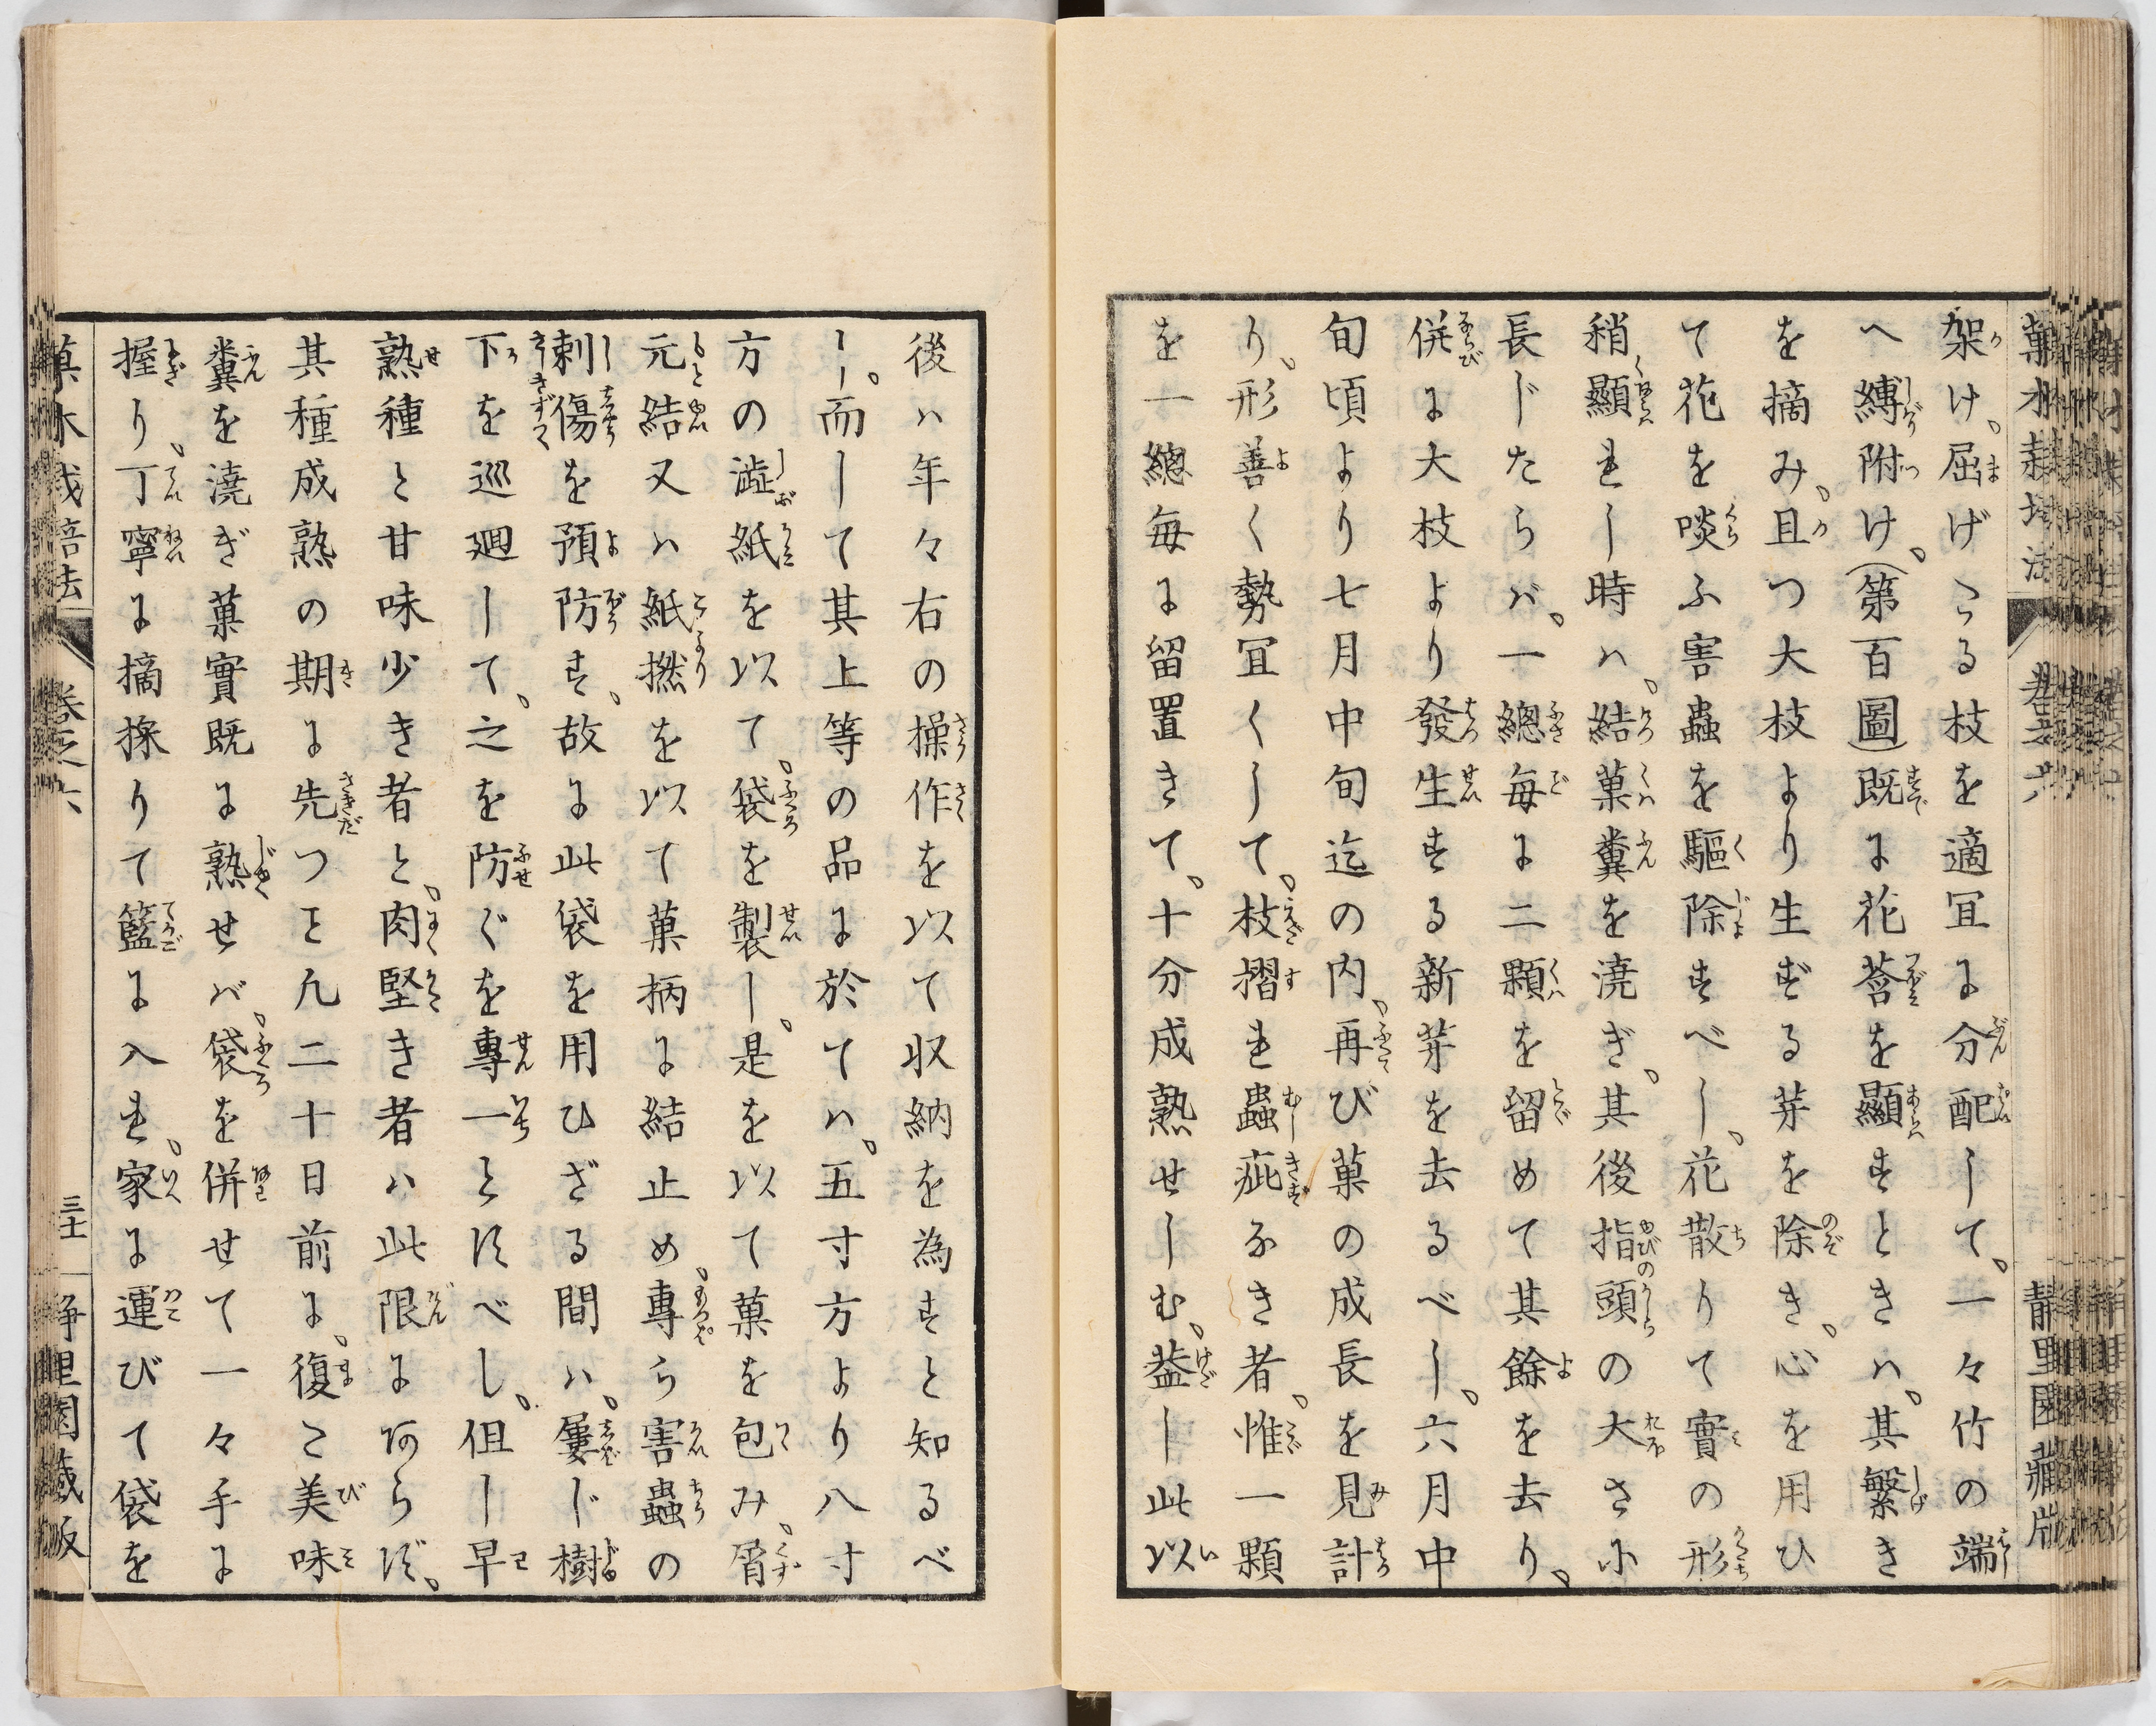 架け、屈げたる枝を適宜に分配して、一々竹の端
へ縛附け、(第百圖)既に花莟を顯すときハ、其繁き
を摘み、且つ大枝より生ずる芽を除き、心を用ひ
て花を啖ふ害蟲を驅除すべし、花散りて實の形
稍顯れし時ハ、結菓糞を澆ぎ、其後指頭の大さ小
長じたらバ、一總毎に二顆を留めて其餘を去り、
併に大枝より發生する新芽を去るべし、六月中
旬頃より七月中旬迄の内、再び菓の成長を見計
り、形善く勢宜くして、枝摺れ蟲疵なき者、惟一顆
を一總毎に留置きて、十分成熟せしむ、蓋し此以
後ハ年々右の操作を以て収納を為すと知るべ
し、而して其上等の品に於てハ、五寸方より八寸
方の澁紙を以て、袋を製し、是を以て菓を包み、屑
元結又ハ紙撚を以て菓柄に結止め、專ら害蟲の
刺傷を預防す、故に此袋を用ひざる間ハ、屢じ樹
下を巡廻して、之を防ぐを專一とすべし、但し早
熟種と甘味少き者と、肉堅き者ハ此限にあらず、
其種成熟の期に先つこと凡二十日前に、復た美味
糞を澆ぎ菓實既に熟せバ、袋を併せて一々手に
握り、丁寧に摘採りて籃に入れ、家に運びて袋を
菓木栽培法 卷之六 三十一 静里園藏版